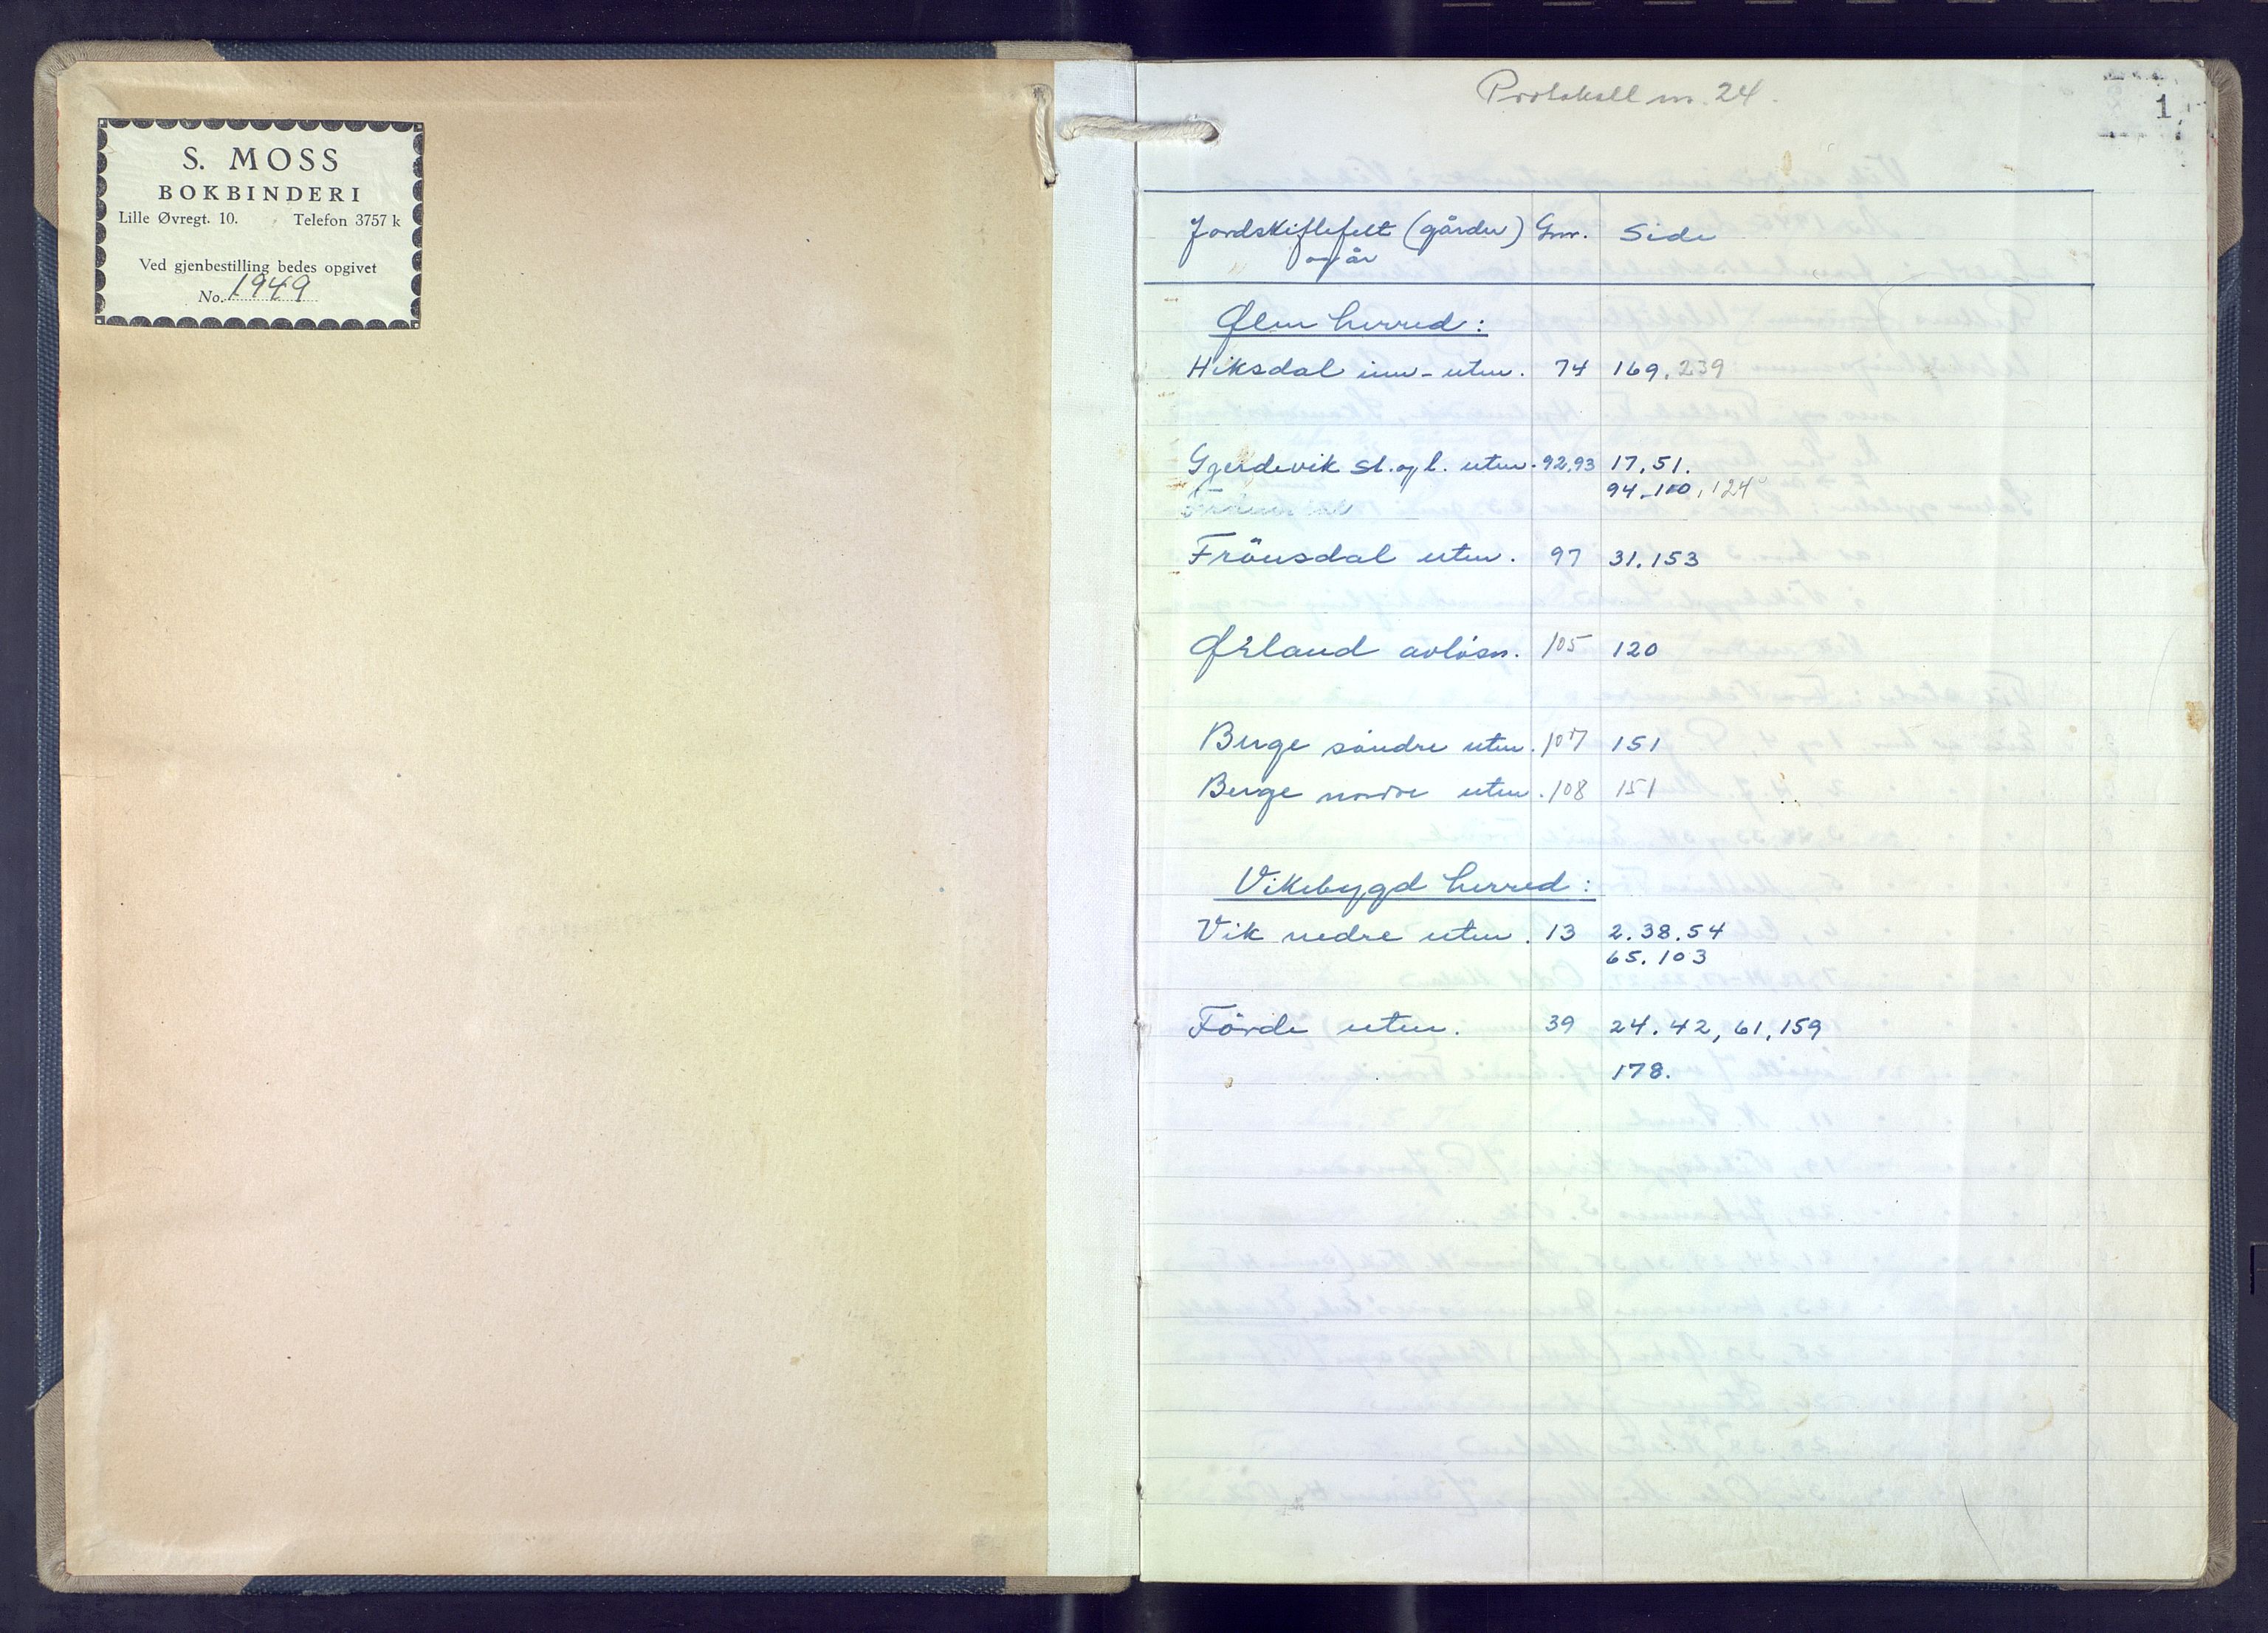 S. MOSS
BOKBINDERI
Lille Øvregt. 10. Telefon 3757 k
Ved gjenbestilling bedes opgivet
No. 1949
Protokoll nr. 24.
1
Jordskiftefelt (gårder) Gnr. Side
og år
Ølen herred:
Hiksdal inn-utm. 74 169. 239
Gjerdevik st. og l. utm. 92,93 17,51.
94, 110, 124
Frönsdal utm. 97 31.153
Økland avlösn. 105 120
Berge söndre utm. 107 151
Berge nordre utm. 108 151
Vikebygd herred:
Vik nedre utm. 13 2.38.54
65.103
Förde utm. 39 24.42, 61,159
178.